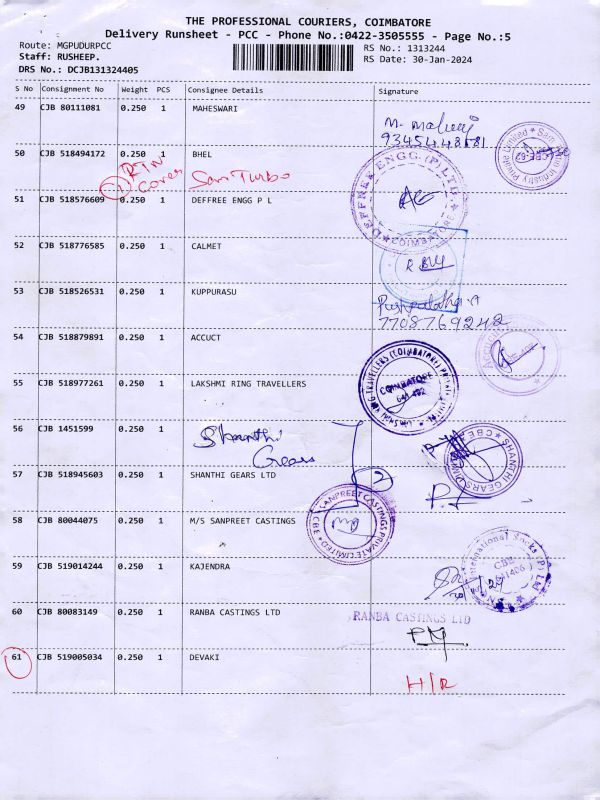 THE PROFESSIONAL COURIERS, COIMBATORE
Delivery Runsheet - PCC - Phone No.:0422-3505555 - Page No.:5
Route: MGPUDURPCC
RS No.: 1313244
Staff: RUSHEEP.
RS Date: 30-Jan-2024
DRS No.: DCJB131324405
S No Consignment No Weight PCS Consignee Details Signature
49 CJB 80111081 0.250 1 MAHESWARI
9345448681
50 CJB 518494172 0.250 1 BHEL
RTN
Sam Turbo
51 CJB 518576609 0.250 1 DEFFREE ENGG P L
DEFFREE ENGG.(P) LTD
COIMBATORE
52 CJB 518776585 0.250 1 CALMET
53 CJB 518526531 0.250 1 KUPPURASU
7708769242
54 CJB 518879891 0.250 1 ACCUCT
55 CJB 518977261 0.250 1 LAKSHMI RING TRAVELLERS
COIMBATORE
641 402
56 CJB 1451599 0.250 1
Shanthi
Gears
57 CJB 518945603 0.250 1 SHANTHI GEARS LTD
2
SHANTHI GEARS
CBE
58 CJB 80044075 0.250 1 M/S SANPREET CASTINGS
SANPREET CASTINGS PRIVATE LIMITED
CBE
59 CJB 519014244 0.250 1 KAJENDRA
International Socks (P) Ltd
CBE
60 CJB 80083149 0.250 1 RANBA CASTINGS LTD
RANBA CASTINGS LTD
61 CJB 519005034 0.250 1 DEVAKI
H/R